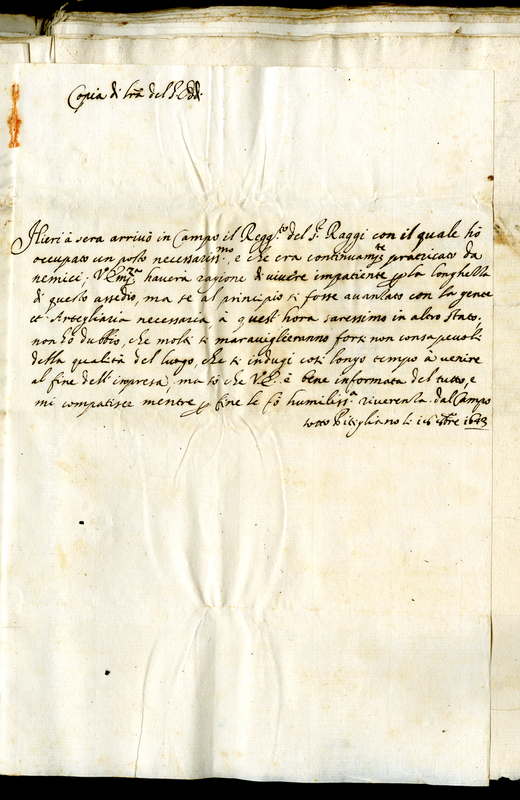 Copia di lra del S.
Hieri à sera arrivò in Campo il Regg.to del S.r Raggi con il quale hò
occupato un posto necessariss.mo, e che era continuam.te praticato da
nemici, V. Em.za haverà ragione di vivere impatiente per la longhezza
di questo assedio, ma se al principio si fosse avanzato con la gente
et Artegliaria necessaria à quest'hora saressimo in altro stato.
non hò dubbio, che molti si maraviglieranno forsi non consapevoli
della qualità del luogo, che si indugi così longo tempo à venire
al fine dell'impresa, ma sò che V.E. è bene informata del tutto, e
mi compatisce mentre per fine le fò humiliss.a riverenza. dal Campo
sotto Pitigliano li 16 1643